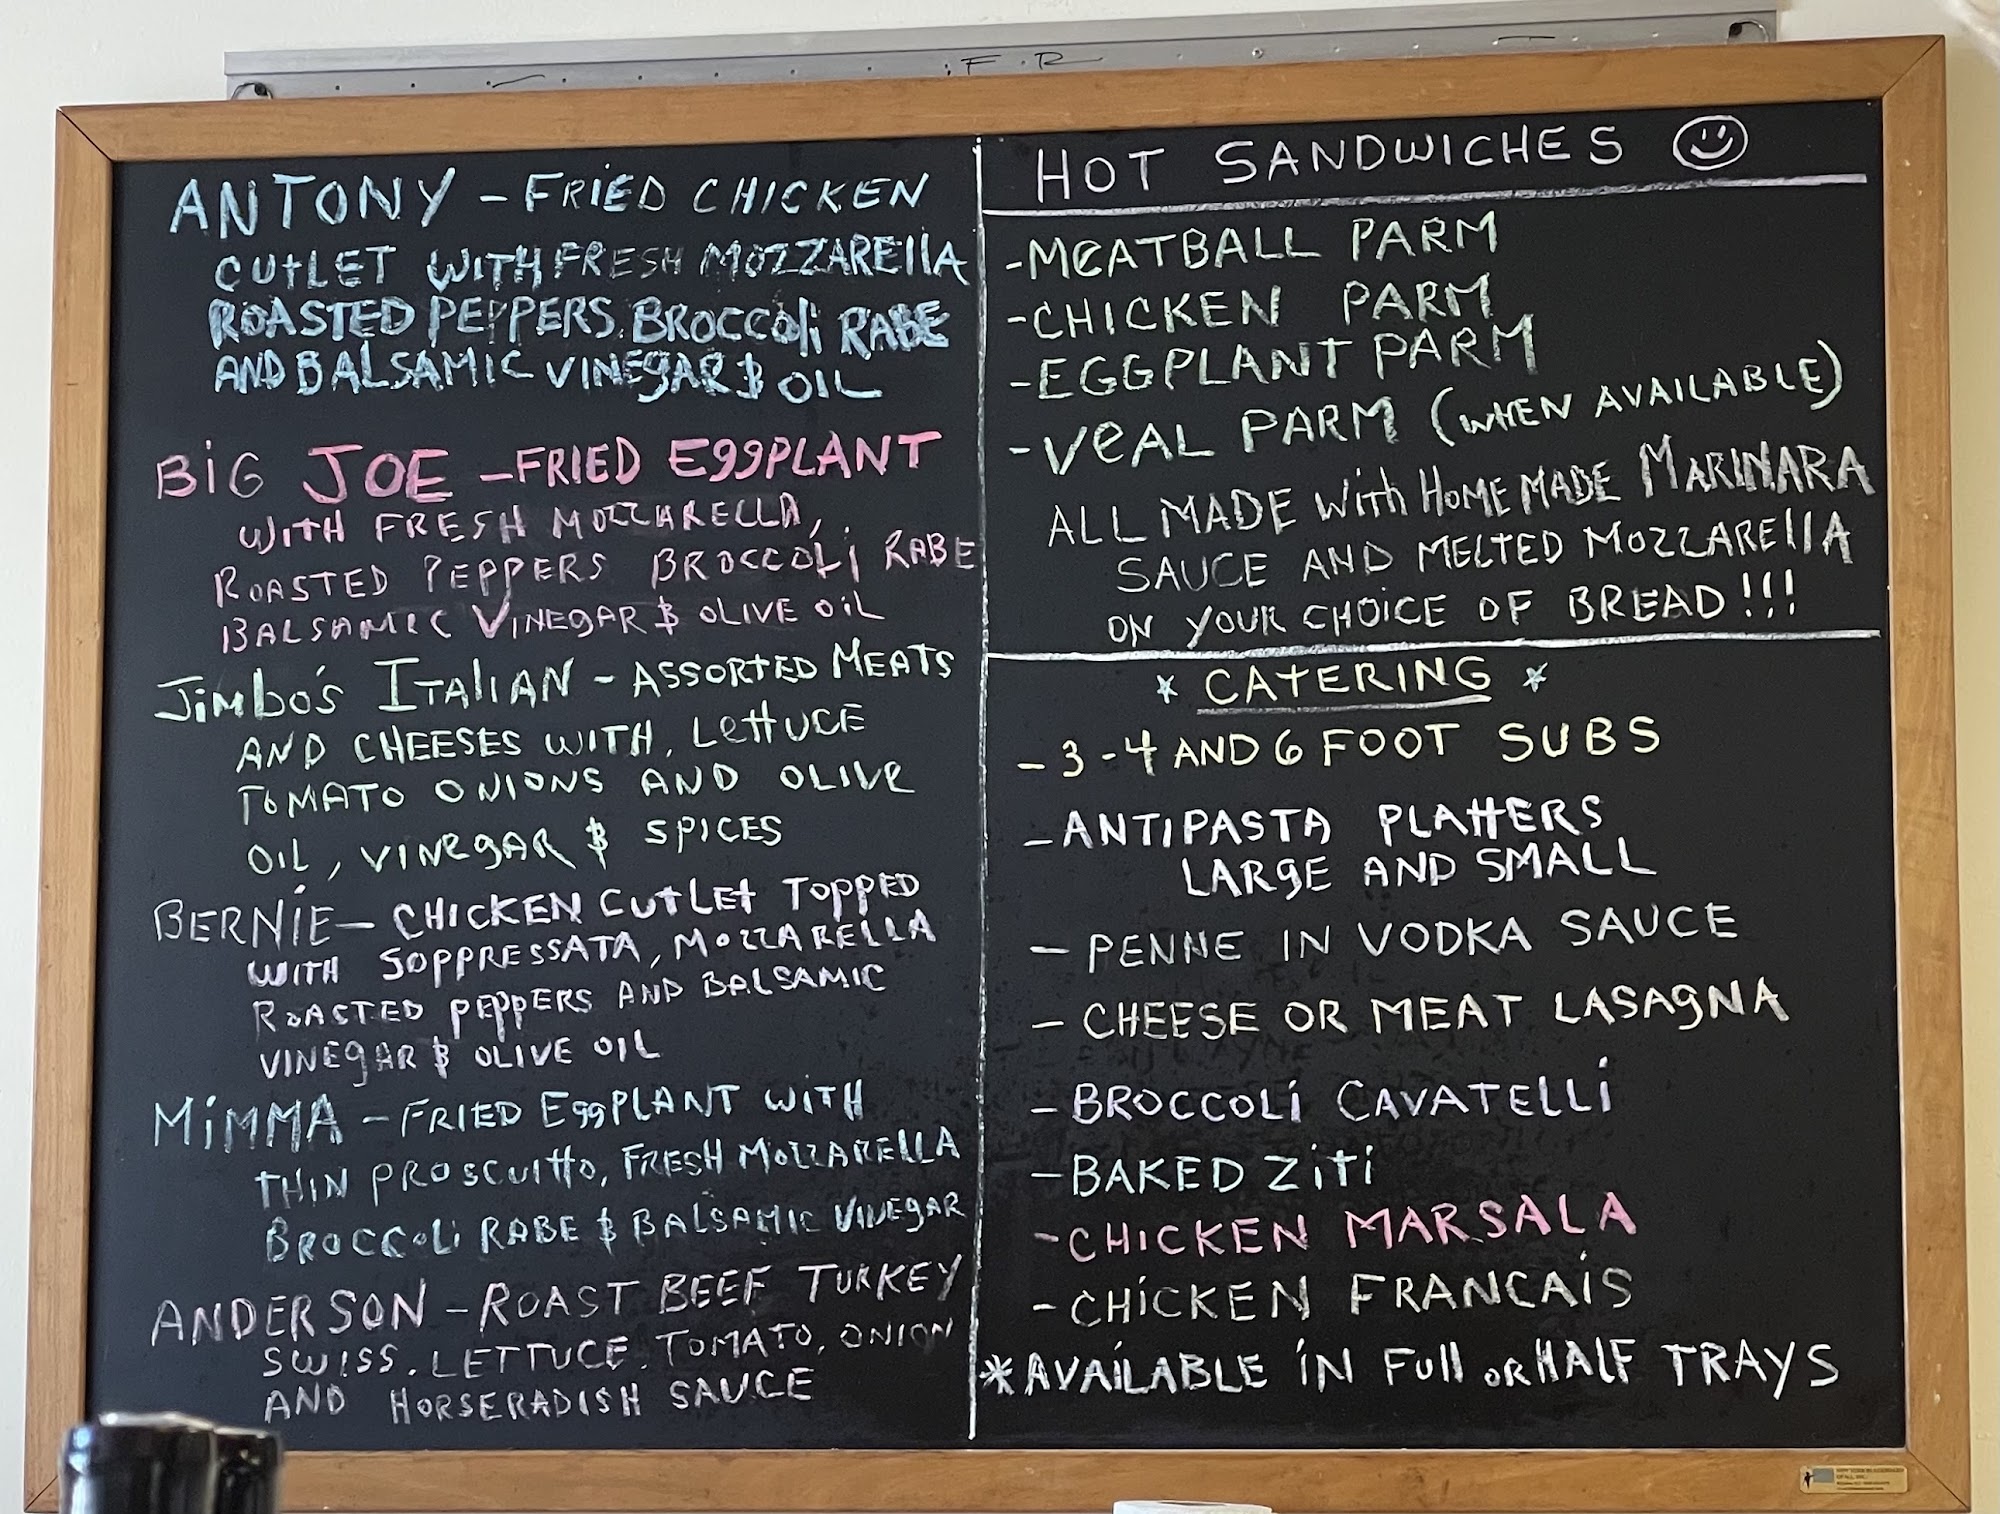 F.R
ANTONY - FRIED CHICKEN
CUTLET WITH FRESH MOZZARELLA
ROASTED PEPPERS. BROCCOLI RABE
AND BALSAMIC VINEGAR & OIL
BIG JOE - FRIED EGGPLANT
WITH FRESH MOZZARELLA,
ROASTED PEPPERS BROCCOLI RABE
BALSAMIC VINEGAR & OLIVE OIL
JIMBO'S ITALIAN - ASSORTED MEATS
AND CHEESES WITH, LETTUCE
TOMATO ONIONS AND OLIVE
OIL, VINEGAR & SPICES
BERNIE - CHICKEN CUTLET TOPPED
WITH SOPPRESSATA, MOZZARELLA
ROASTED PEPPERS AND BALSAMIC
VINEGAR & OLIVE OIL
MIMMA - FRIED EGGPLANT WITH
THIN PROSCUITTO, FRESH MOZZARELLA
BROCCOLI RABE & BALSAMIC VINEGAR
ANDERSON - ROAST BEEF TURKEY
SWISS. LETTUCE. TOMATO, ONION
AND HORSERADISH SAUCE
HOT SANDWICHES
- MEATBALL PARM
- CHICKEN PARM
- EGGPLANT PARM
- VEAL PARM (WHEN AVAILABLE)
ALL MADE WITH HOMEMADE MARINARA
SAUCE AND MELTED MOZZARELLA
ON YOUR CHOICE OF BREAD!!!
* CATERING *
- 3 - 4 AND 6 FOOT SUBS
- ANTIPASTA PLATTERS
LARGE AND SMALL
- PENNE IN VODKA SAUCE
- CHEESE OR MEAT LASAGNA
- BROCCOLI CAVATELLI
- BAKED ZITI
- CHICKEN MARSALA
- CHICKEN FRANCAIS
*AVAILABLE IN FULL OR HALF TRAYS